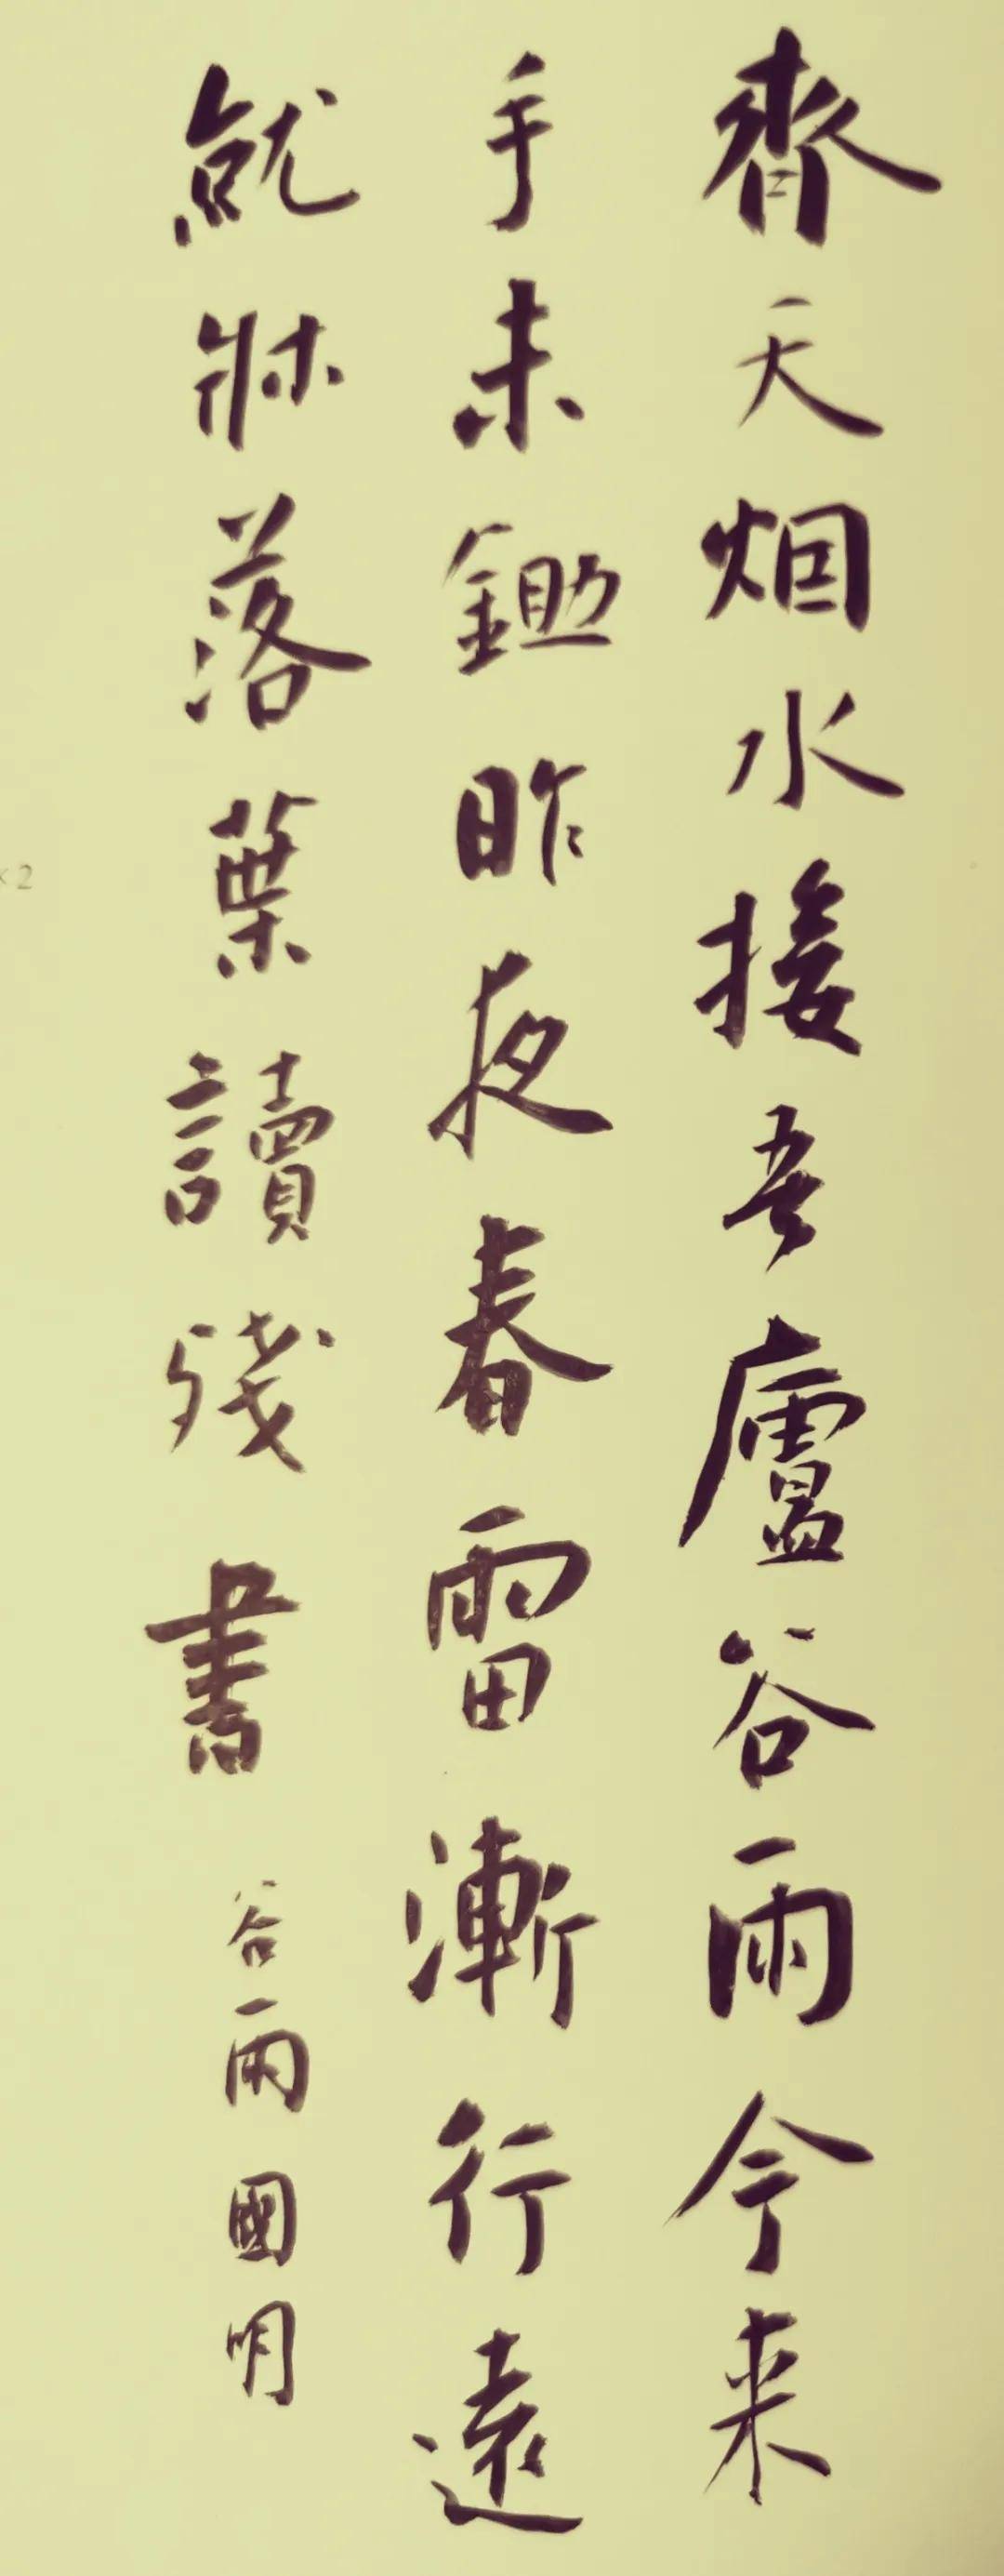 齊天烟水接吾廬谷雨今來
手未鋤昨夜春雷漸行遠
就牀落葉讀殘書
谷雨國明
×2